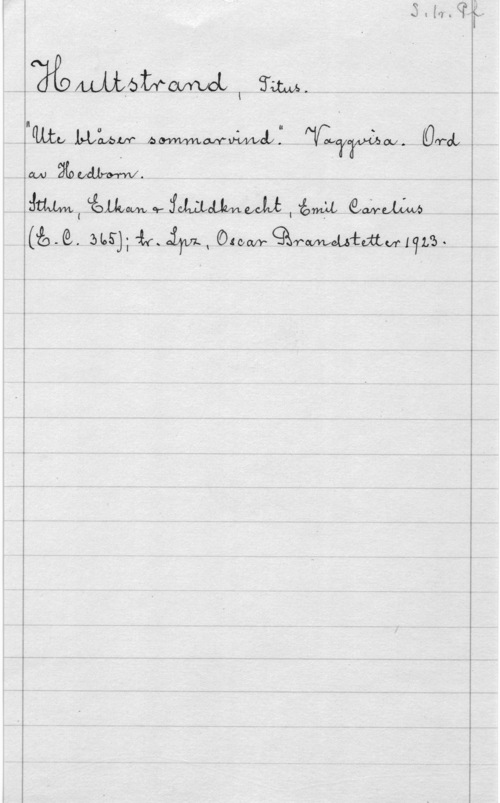 S. tr. Pf
Hultstrand, Titus.
"Ute blåser sommarvind." Vaggvisa. Ord
av Hedborn.
Sthlm, Elkan & Schildknecht, Emil Carelius
(E.C. 365); tr. Lpz, Oscar Brandstetter 1923.